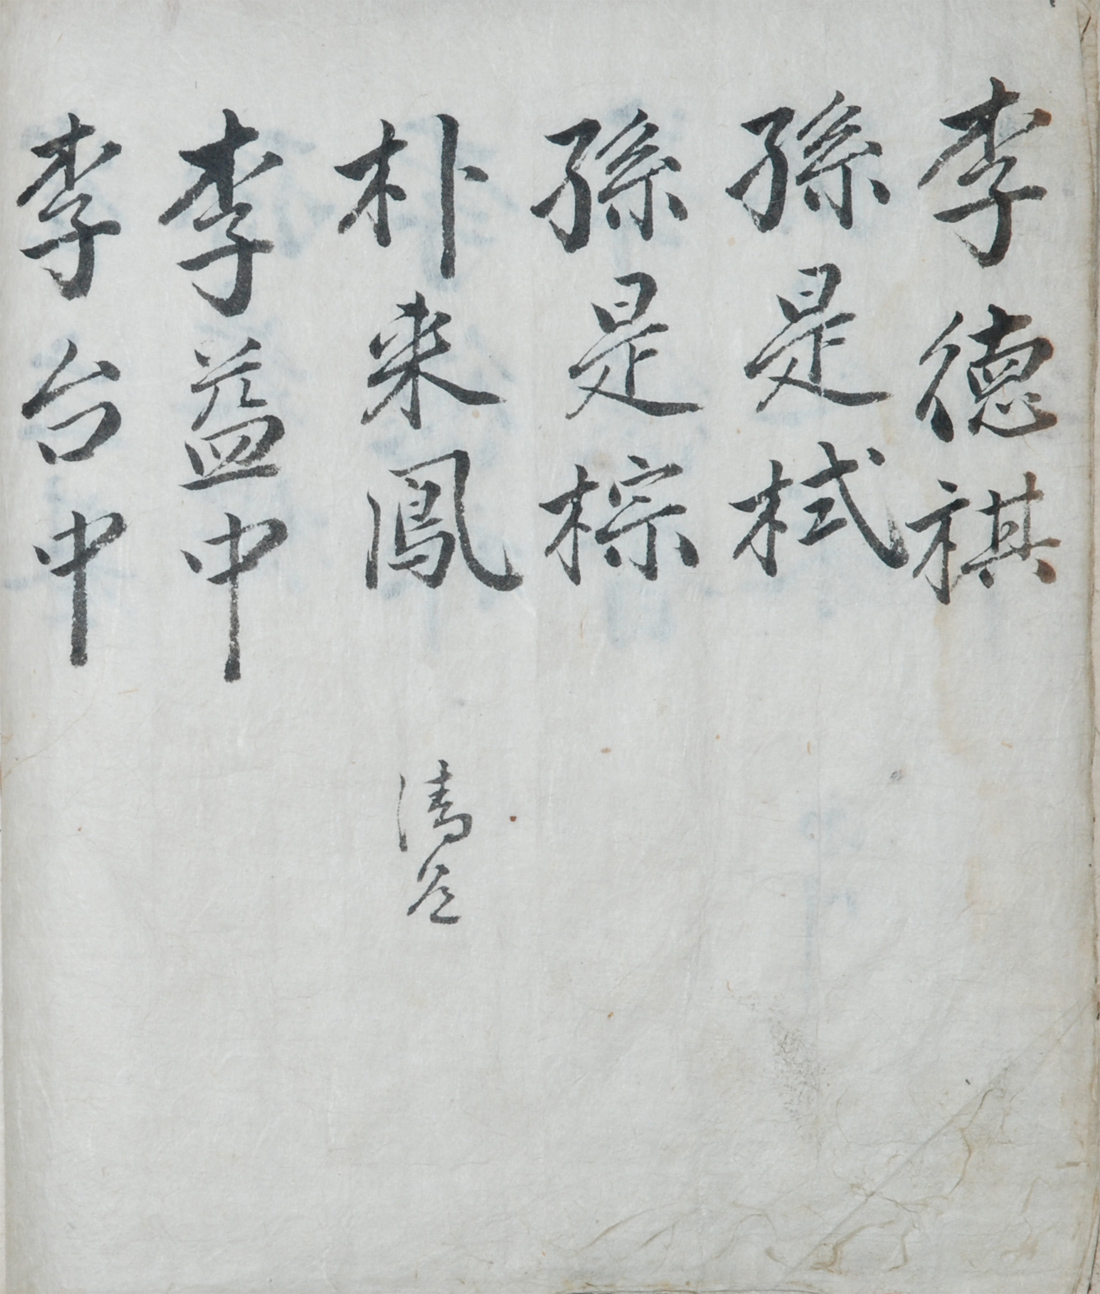 李德祺
孫是栻
孫是棕
朴来鳳
清道
李益中
李台中